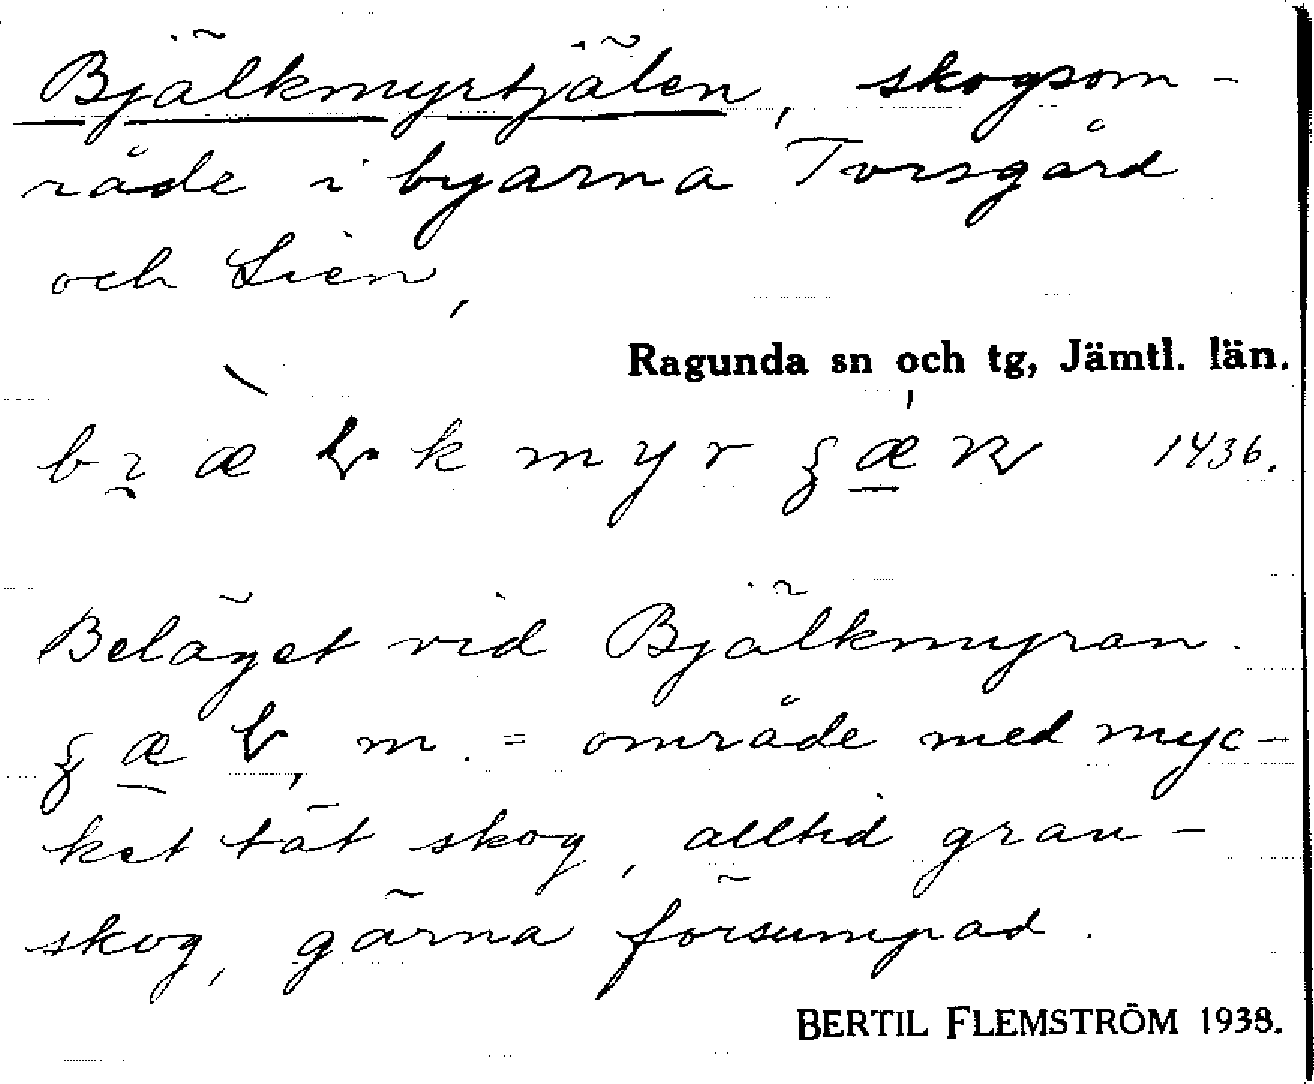 Bjälkmyrtjälen, skogsom-
råde i byarna Torsgård
och Lien,
Ragunda sn och tg, Jämtl. län.
1436.
Beläget vid Bjälkmyran.
m. = område med myc-
ket tät skog, alltid gran-
skog, gärna försumpad.
BERTIL FLEMSTRÖM 1938.